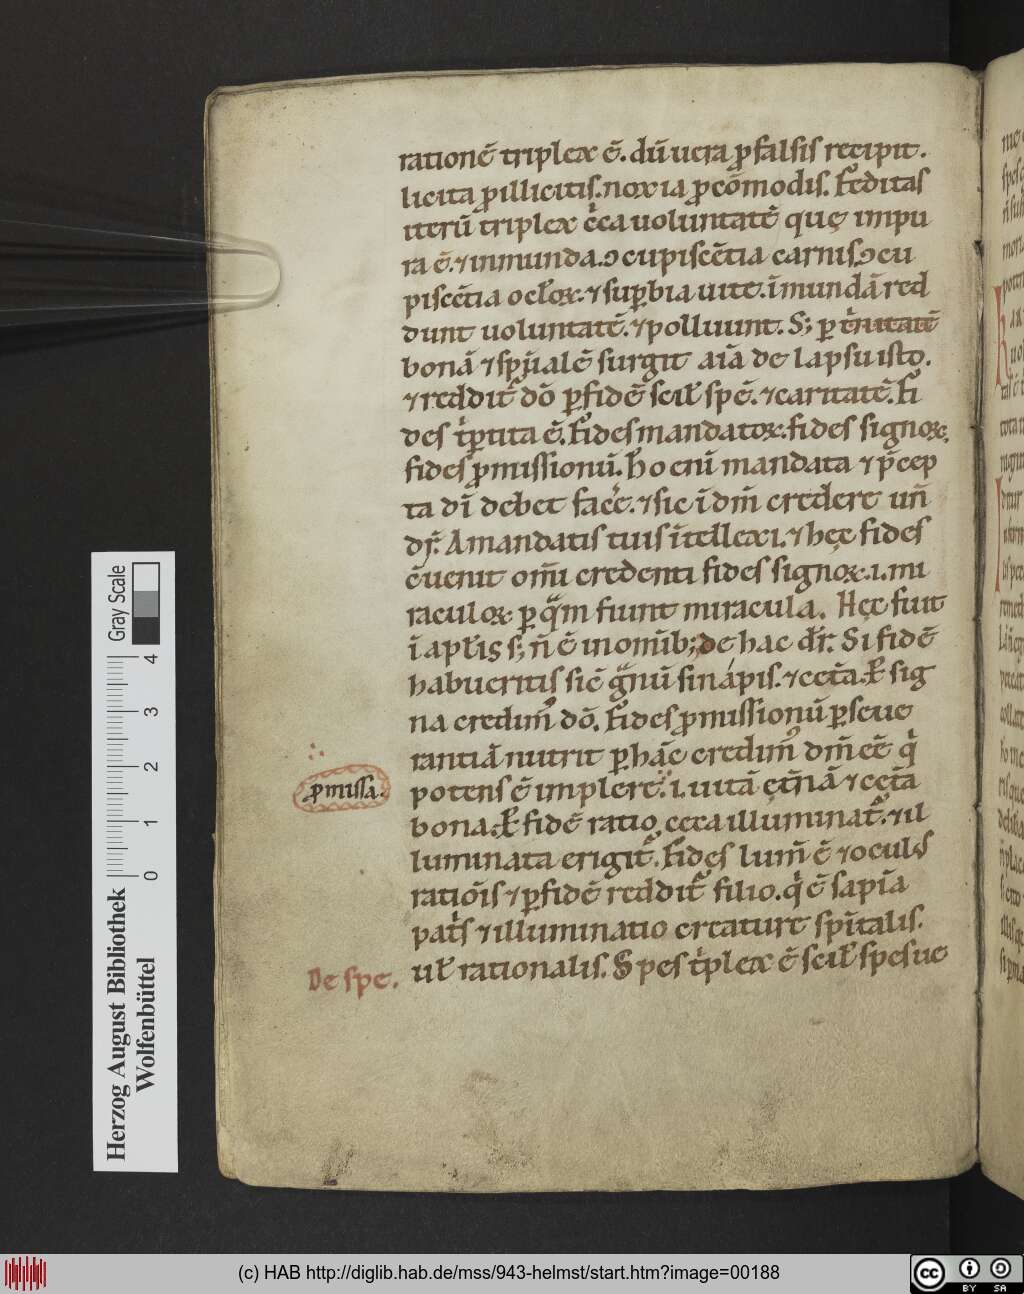 rationē triplex ē. dū uera ꝓ falsis recipit.
licita ꝓ illicitis. noxia ꝓ cōmodis. Feditas
iterū triplex ē c̄ca uoluntatē quę impu
ra ē. ⁊ inmunda. ꝯcupiscētia carnis. ꝯcu
piscētia oclōꝝ. ⁊ suꝑbia uite. īmundā red
dunt uoluntatē. ⁊ polluunt. S; ꝑ t̄nitatē
bonā ⁊ spūalē surgit aīa de lapsu isto.
⁊ reddit᷑ dō ꝑ fidē scił spē. ⁊ caritatē. Fi
des tꝑtita ē. Fides mandatoꝝ. fides signoꝝ.
fides ꝓmissionū. Ho enī mandata ⁊ p̄cep
ta dī debet facē. ⁊ sic ī dm̄ credere un̄
dr̄. A mandatis tuis ītellexi. ⁊ hęc fides
ēuenit om̄i credenti fides signoꝝ .i. mi
raculoꝝ ꝑ qͣm fiunt miracula. Hęc fuit
ī aplis s; n̄ ē in omīb; de hac dr̄. Si fidē
habueritis sic̄ gͣnū sinapis. ⁊ cetͣa. ꝑ sig
na credim᷒ dō. Fides ꝓmissionū ꝑseue
rantiā nutrit ꝑ hāc credim᷒ dm̄ eē qͥ
potens ē implere .i. uitā ęt̄nā ⁊ cętͣa
bona. ꝑ fidē ratio cęca illuminat᷑. ⁊ il
luminata erigit᷑. Fides lum̄ ē ⁊ oculꝰ
ratiōis ⁊ ꝑ fidē reddit᷑ filio. qͥ ē sapīa
patͥs ⁊ illuminatio creature spītalis.
uł rationalis. Spes tͥplex ē scił spes ue
ꝓmissa.
De spe.
Herzog August Bibliothek
Wolfenbüttel
0 1 2 3 4
Gray Scale
(c) HAB http://diglib.hab.de/mss/943-helmst/start.htm?image=00188
cc
BY SA